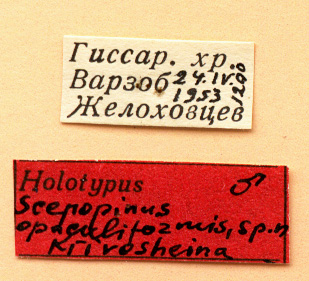 Гиссар. хр.
Варзоб 24.IV.
1953 1200
Желоховцев
Holotypus ♂
Scenopinus
opaculiformis, sp.n
Krivosheina